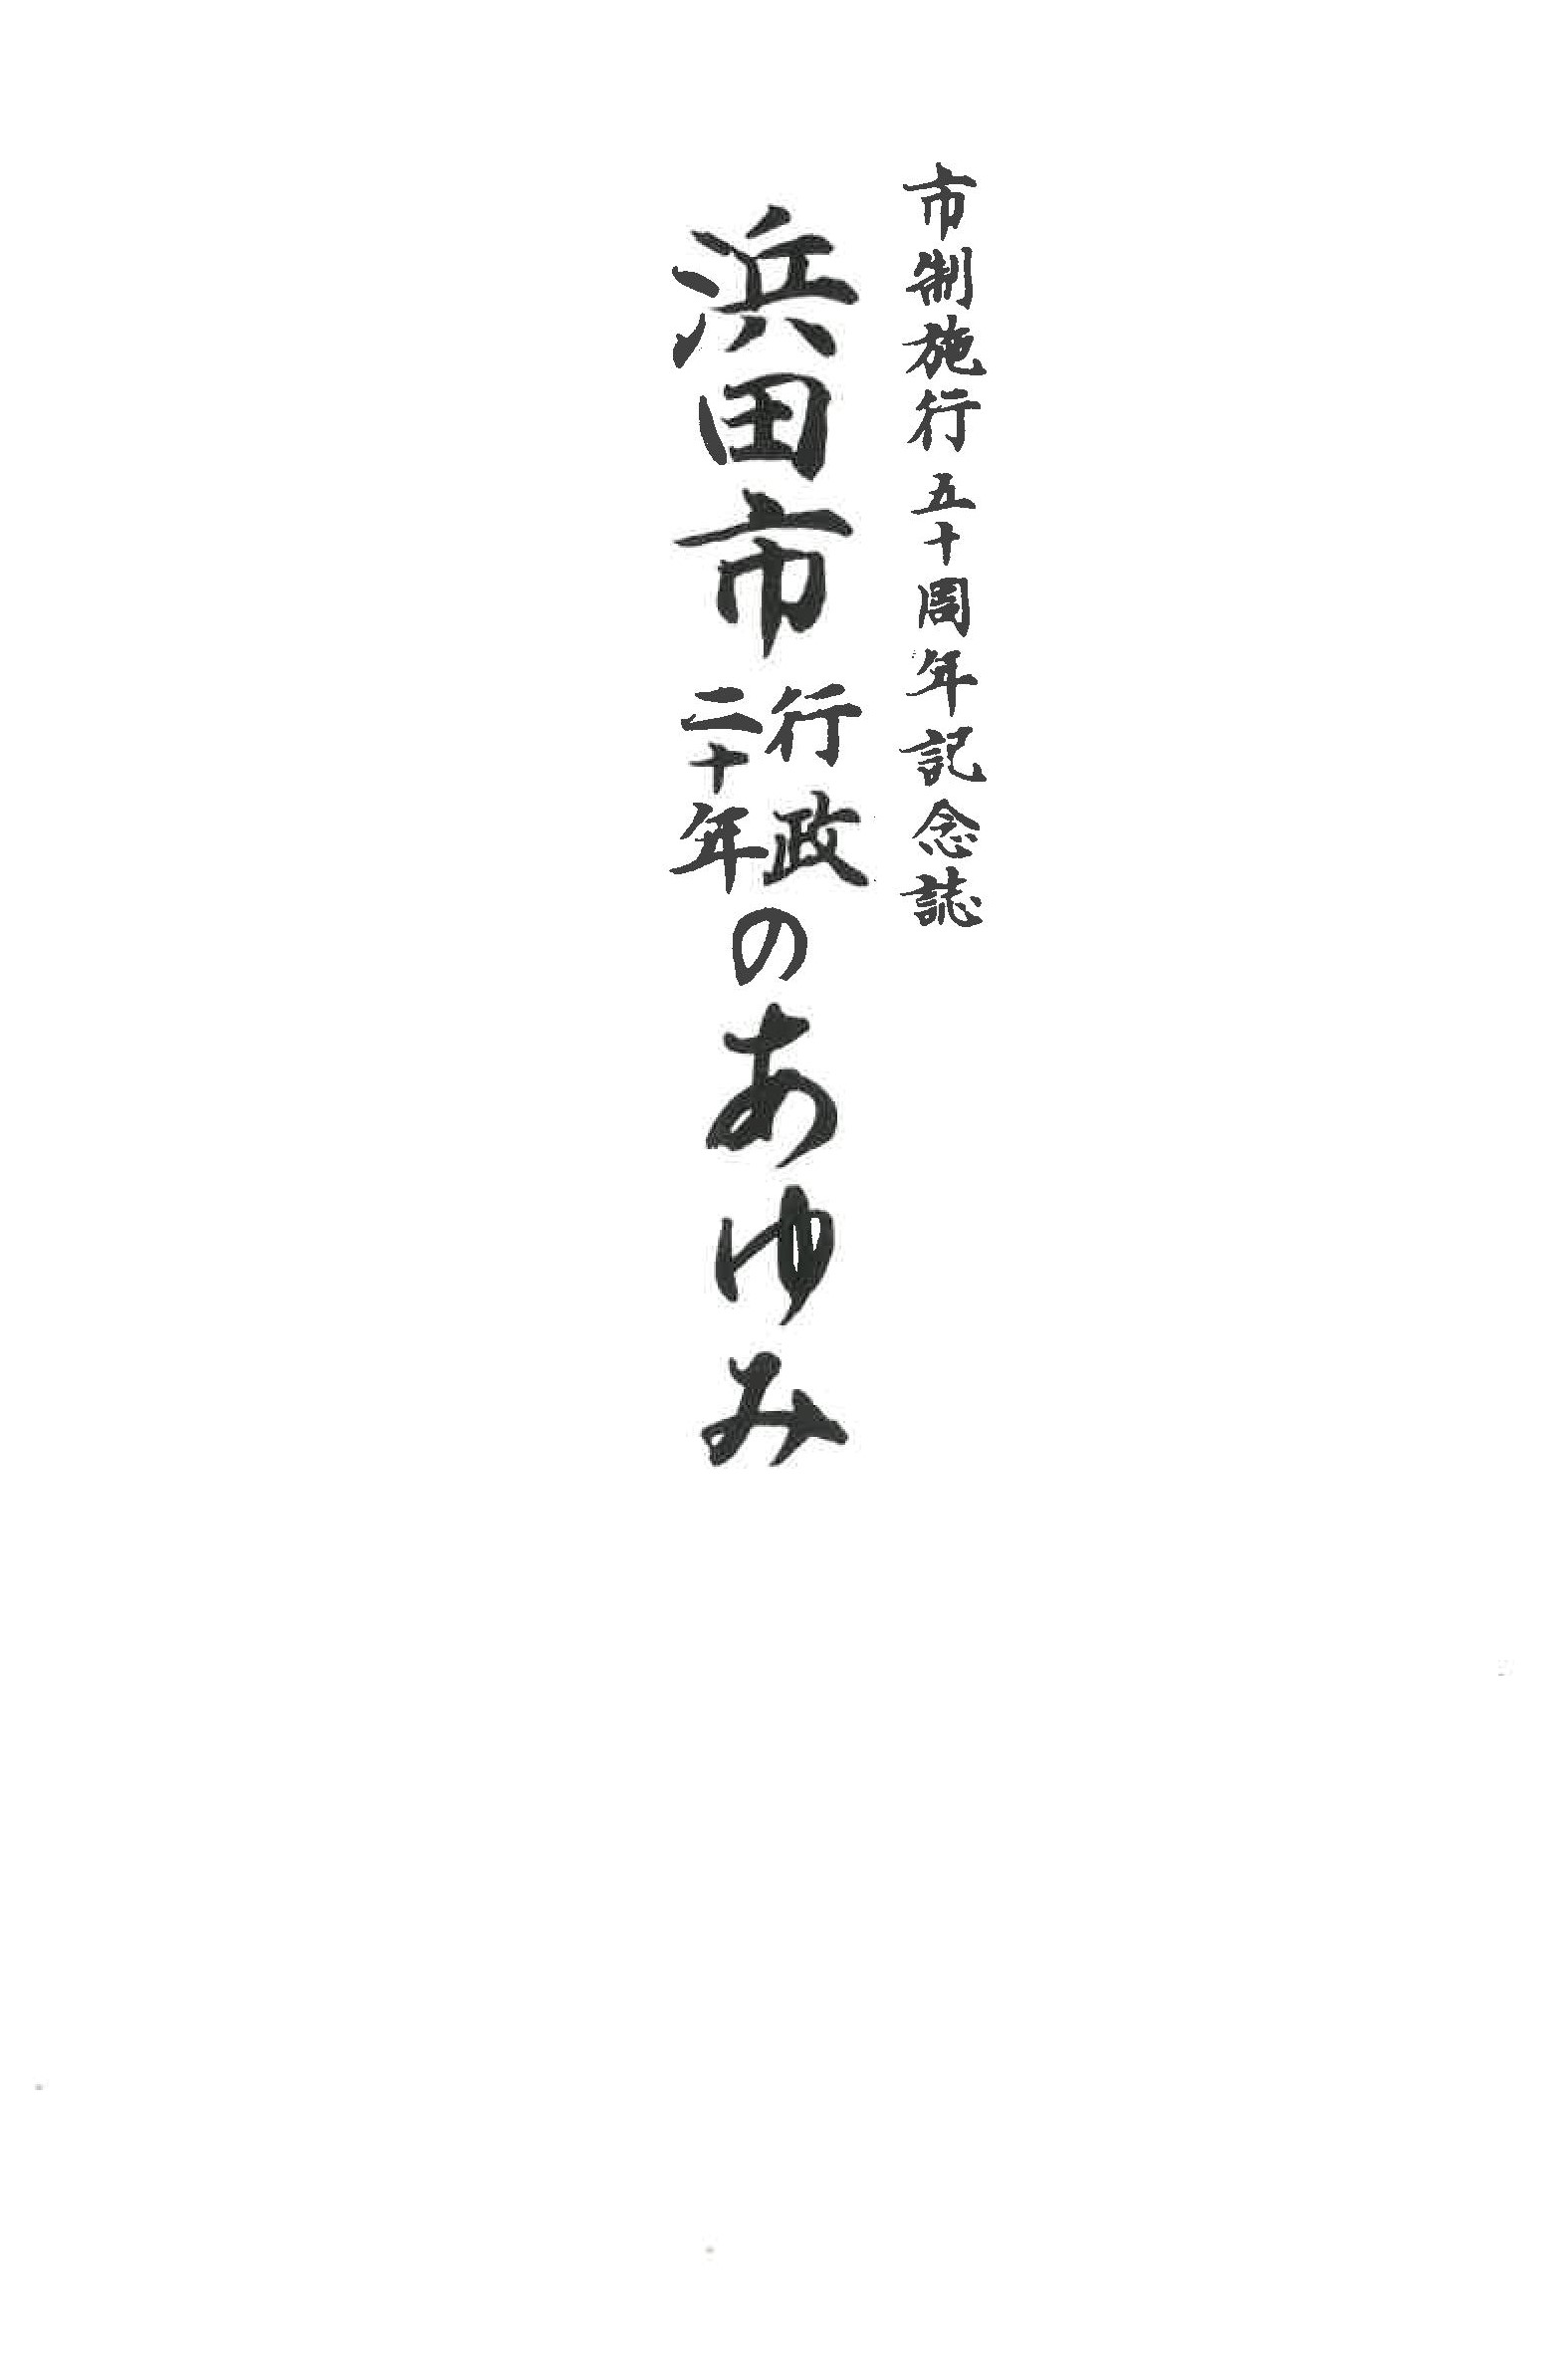 市制施行五十周年記念誌
浜田市行政二十年のあゆみ